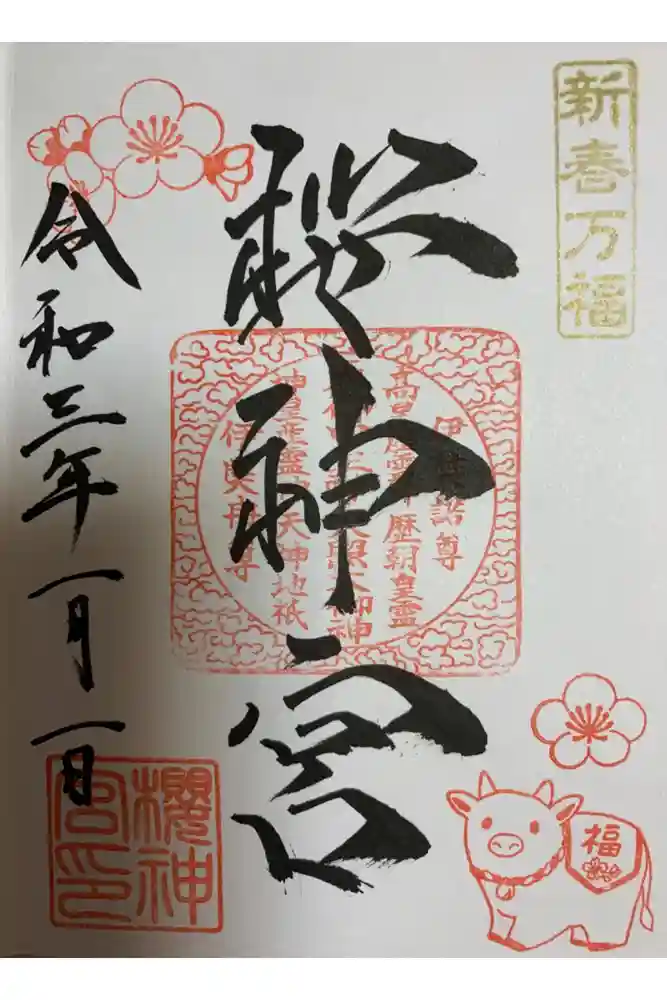 新春万福
桜神宮
伊弉諾尊
高皇産霊神歴朝皇霊
天照大御神
神皇産霊神天神地祇
伊弉冉尊
令和三年一月一日
櫻神宮印
福